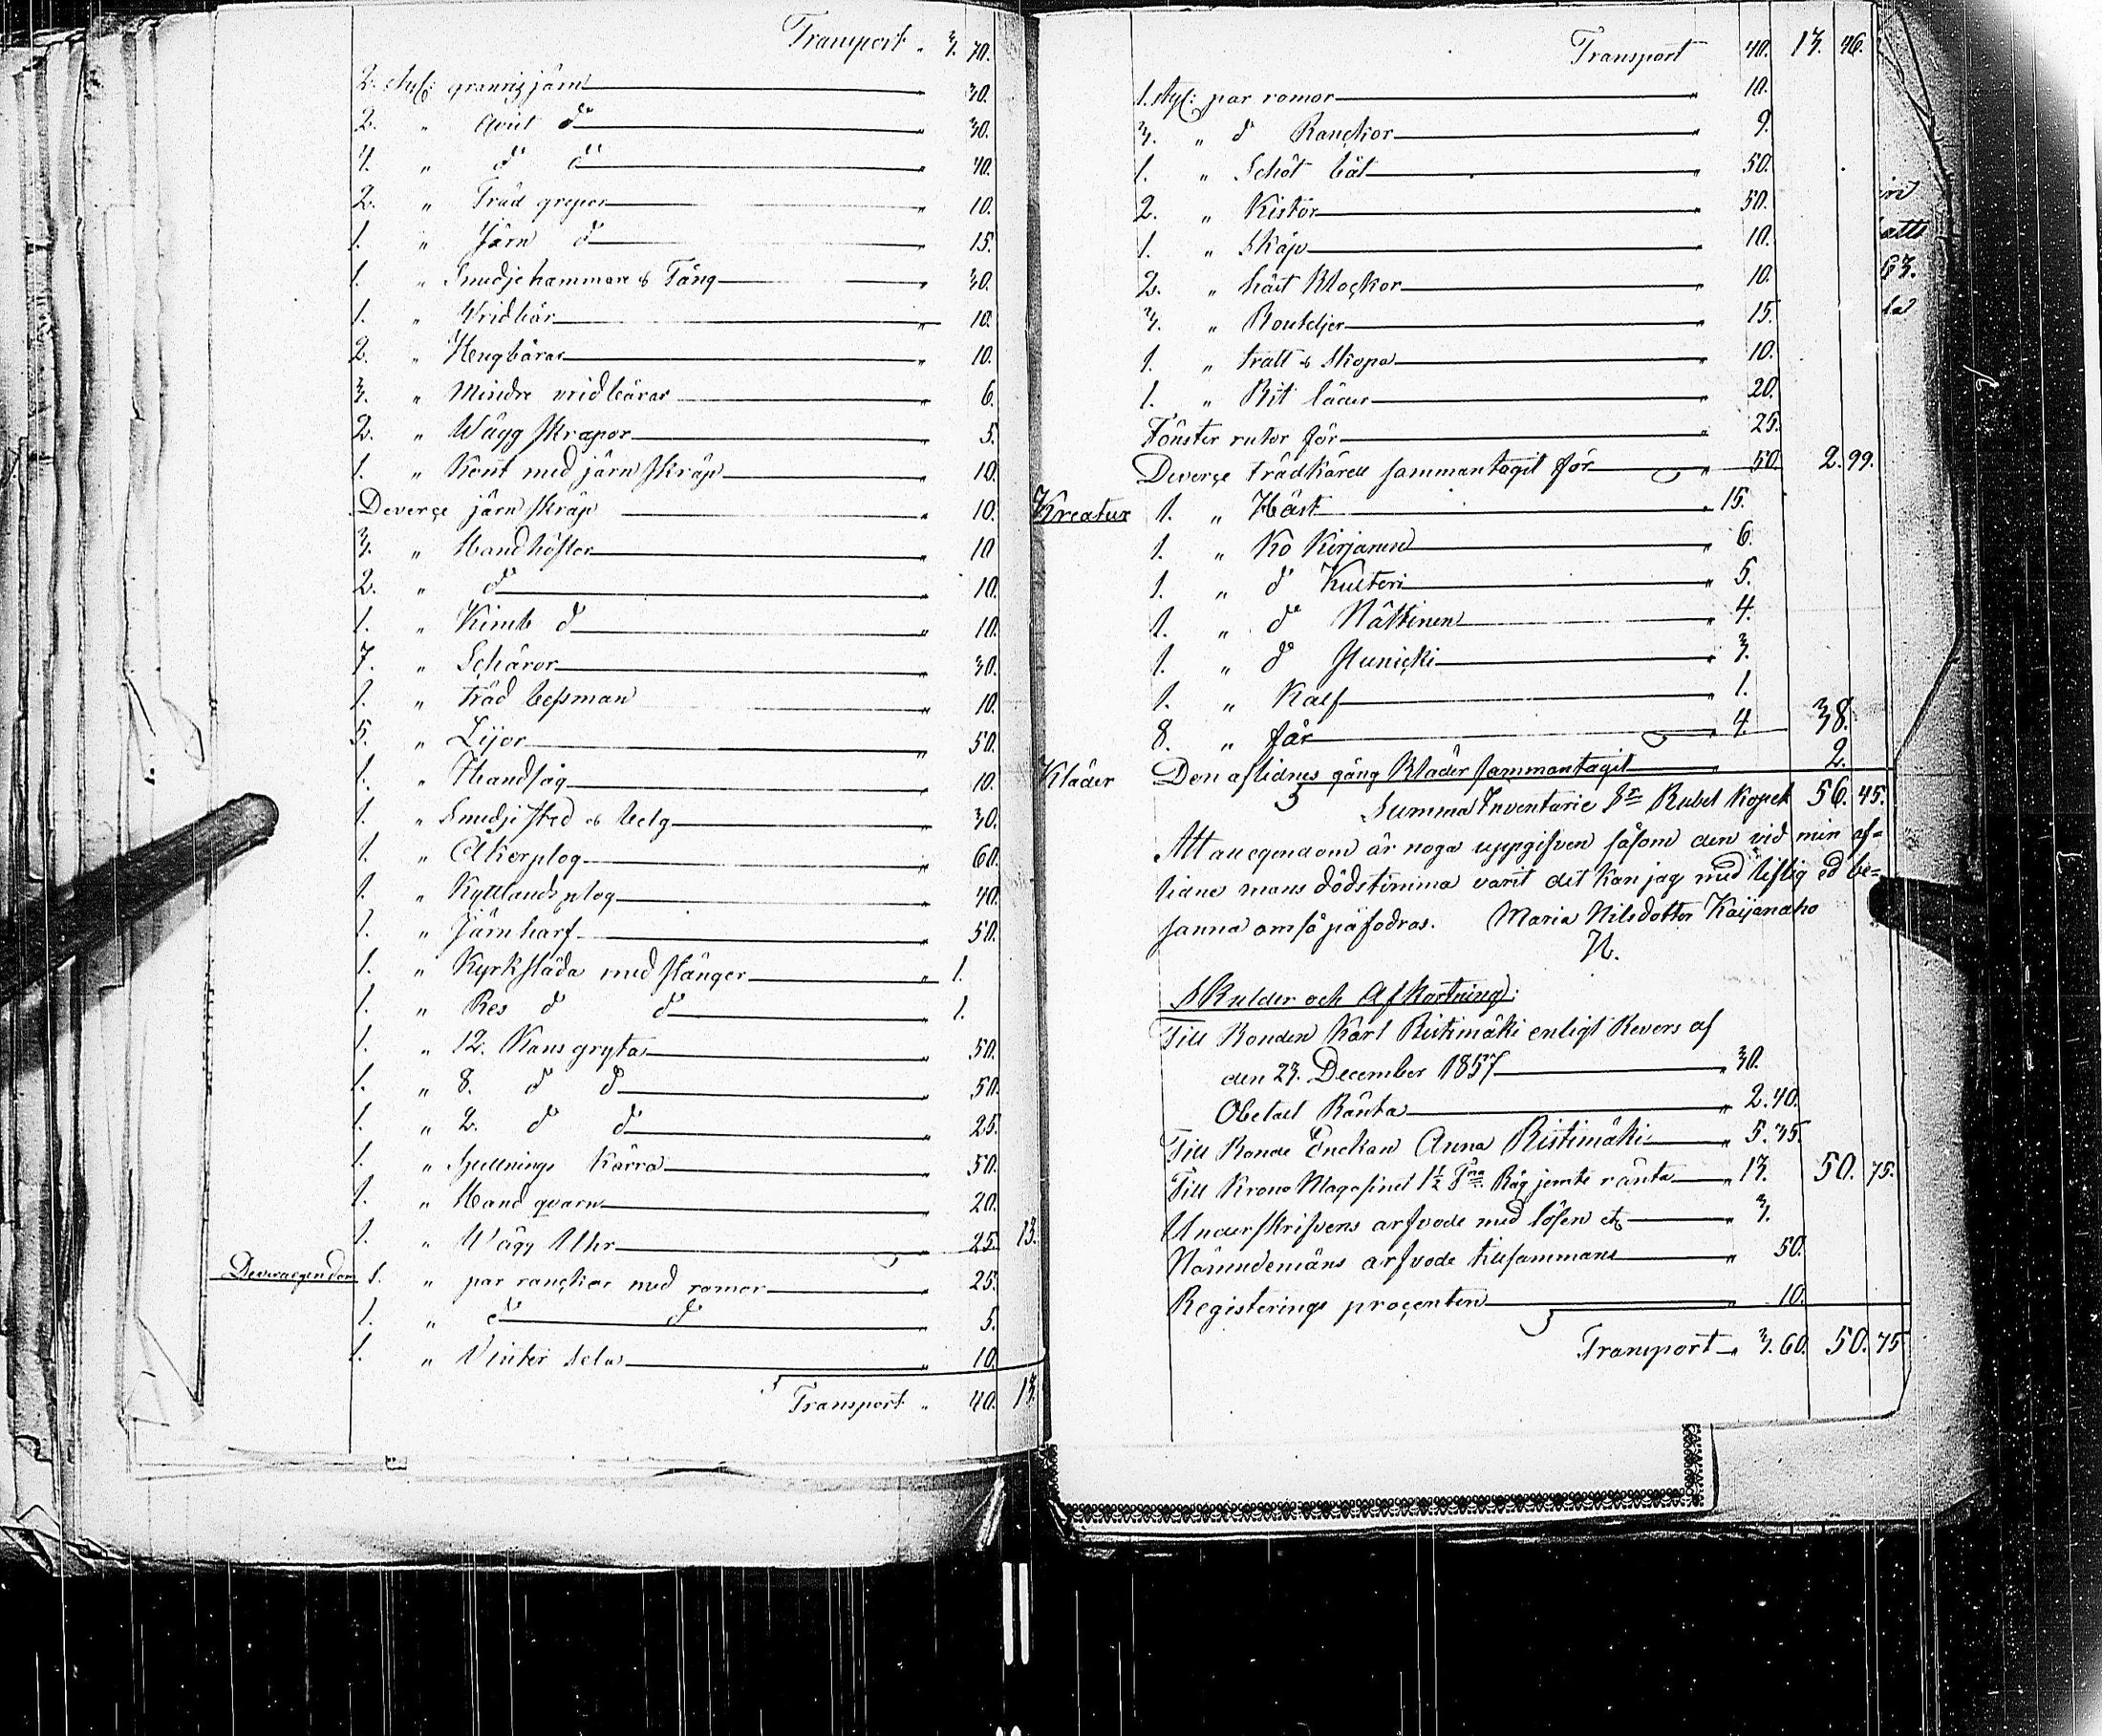 Transport " 3. 70.
2. styc: granrisjärn " 30.
2. " Qvist do " 30.
4. " do do " 40.
2. " Träd grepar " 10.
1. " Järn do " 15.
1. " Smedjehammare & Tång " 30.
1. " Vridbår " 10.
2. " Hengbårar " 10.
3. " Mindre vridbårar " 6.
2. " Wägg skrapor " 5.
1. " Kont med järn skräp " 10.
Deverçe järn skräp " 10.
3. " Handhöflar " 10
2. " do " 10.
1. " Kimb do " 10.
7. " Schäror " 30.
1. " träd bessman " 10.
5. " Lijor " 50.
1. " Handsåg " 10.
1. " Smedje sted & belg " 30.
1. " Åkerplog " 60.
1. " Kyttlands plog " 40.
1. " Järnharf " 50.
1. " Kyrksläda med stänger " 1.
1. " Res do do " 1.
1. " 12. Kans gryta " 50.
1. " 8. do do " 50.
1. " 2. do do " 25.
1. " kärra " 50.
1. " Hand qvarn " 20.
1. " Wägg Uhr " 25. 13.
Deverse egendom 1. " par rançkor med romor " 25.
1. " do do " 5.
1. " Vinter sela " 10.
Transport " 40. 13.
Transport 40. 13. 46.
1. styc: par romor " 10.
3. " do Rançkor " 9.
1. " Schöt båt " 50.
2. " Kistor " 50.
1. " Skåp " 10.
2. " häst Klockor " 10.
3. " Bouteljer " 15.
1. " tratt & skopa " 10.
1. " Bit läder " 20.
Fönster rutor för " 25.
Deverçe trädkärell sammantagit för " 50. 2. 99.
Kreatur 1. " Häst " 15.
1. " Ko Kirjanen " 6.
1. " do Kulteri " 5.
1. " do Nättinen " 4.
1. " do Muniçki " 3.
1. " Kalf " 1.
8. " får " 4. 38.
Kläder Den aflidnes gång Kläder sammantagit " 2.
Summa Inventarie Sr Rubel Kopek 56. 45.
Att all egendom är noga uppgifven såsom den vid min af=
lidne mans dödstimma varit det kan jag med liflig ed be=
sanna om så påfodras. Maria Nilsdotter Kaijanaho
N.
Skulder och Afkortning:
Till Bonden Karl Ristimäki enligt Revers af
den 23. December 1857 " 30.
Obetalt Ränta " 2. 40.
Till Bonde Enckan Anna Ristimäki " 5. 35.
Till Krono Magasinet 1½ Tna Råg jemte ränta " 13. 50. 75.
Underskrifvens arfvode med lösen etc " 3.
Nämndemäns arfvode tillsammans " 50.
Registerings proçenten " 10.
Transport " 3. 60. 50. 75